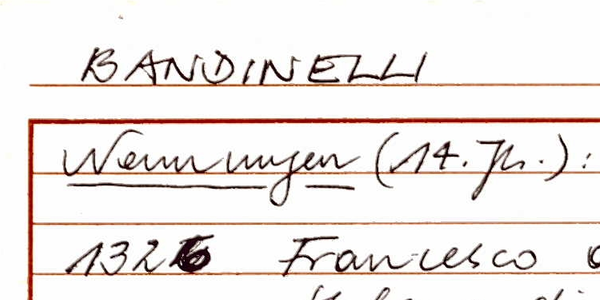 BANDINELLI
Nennungen (14. Jh.):
1326 Francesco